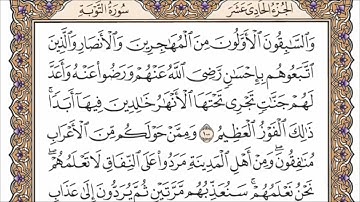 الجزء الحادي عشر
سورة التوبة
وَالسَّٰبِقُونَ الْأَوَّلُونَ مِنَ الْمُهَٰجِرِينَ وَالْأَنصَارِ وَالَّذِينَ
اتَّبَعُوهُم بِإِحْسَٰنٍ رَّضِيَ اللَّهُ عَنْهُمْ وَرَضُوا۟ عَنْهُ وَأَعَدَّ
لَهُمْ جَنَّٰتٍ تَجْرِي تَحْتَهَا الْأَنْهَٰرُ خَٰلِدِينَ فِيهَآ أَبَدًا ۚ
ذَٰلِكَ الْفَوْزُ الْعَظِيمُ ١٠٠ وَمِمَّنْ حَوْلَكُم مِّنَ الْأَعْرَابِ
مُنَٰفِقُونَ ۖ وَمِنْ أَهْلِ الْمَدِينَةِ ۖ مَرَدُوا۟ عَلَى النِّفَاقِ لَا تَعْلَمُهُمْ ۖ
نَحْنُ نَعْلَمُهُمْ ۚ سَنُعَذِّبُهُم مَّرَّتَيْنِ ثُمَّ يُرَدُّونَ إِلَىٰ عَذَابٍ